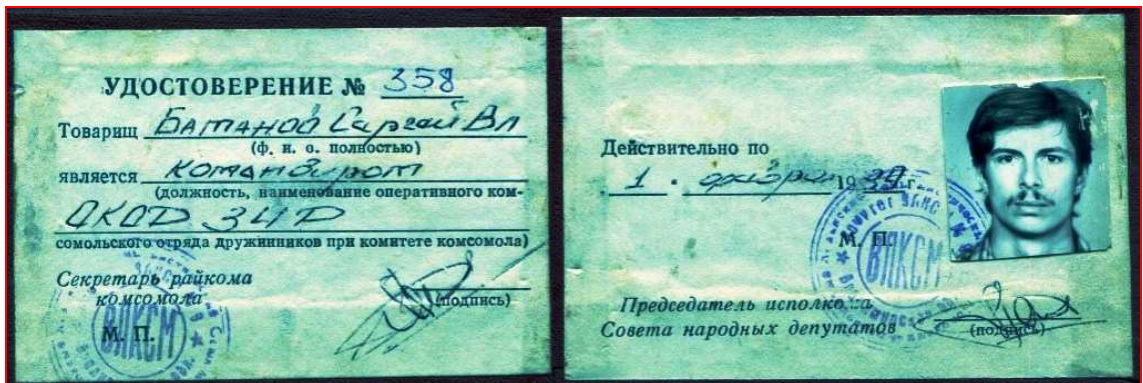 УДОСТОВЕРЕНИЕ № 358
Товарищ Батанов Сергей Вл
(ф. и. о. полностью)
является командиром
(должность, наименование оперативного ком-
ОКОД ЗИД
сомольского отряда дружинников при комитете комсомола)
Секретарь райкома
комсомола
(подпись)
М. П.
ВЛКСМ
Действительно по
1 · 19 г.
М. П.
ВЛКСМ
Председатель исполкома
Совета народных депутатов
(подпись)